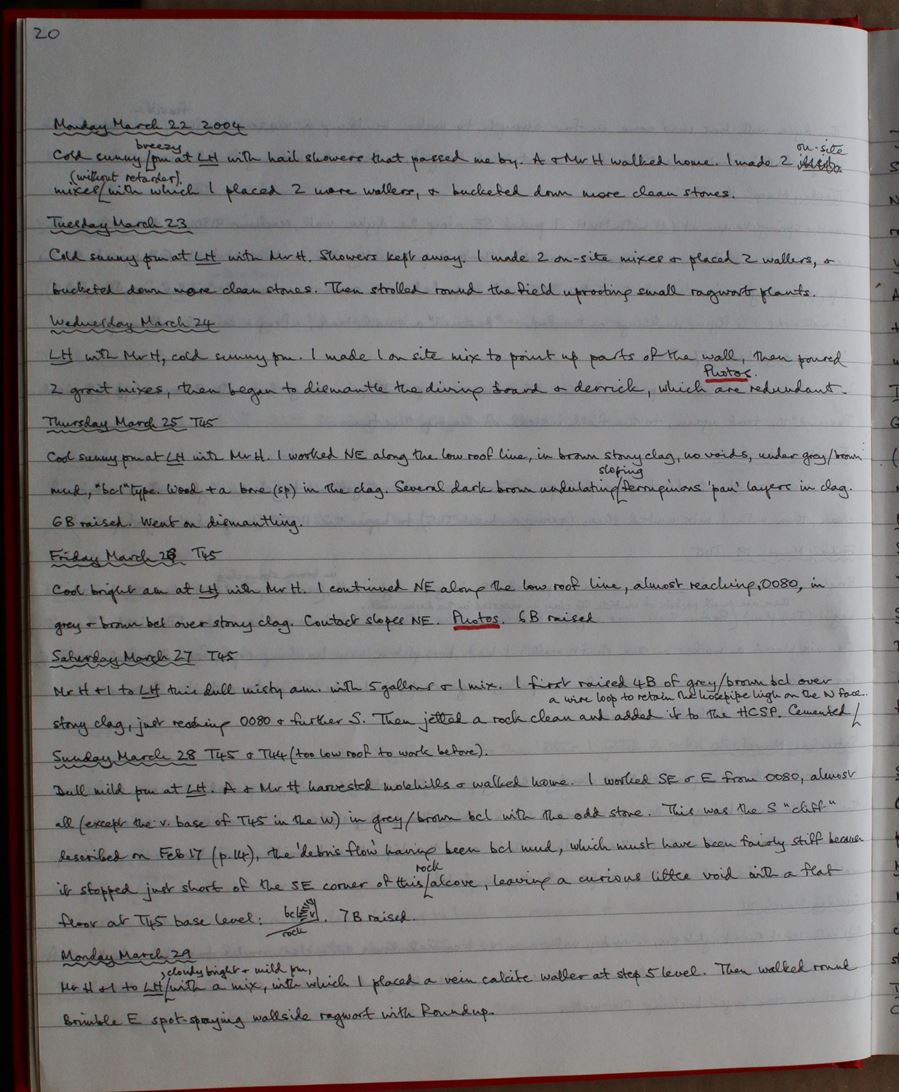 20
Monday March 22 2004
Cold sunny breezy pm at LH with hail showers that passed me by. A + Mr H walked home. I made 2 on-site
mixes (without retarder), with which I placed 2 more wallers, & bucketed down more clean stones.
Tuesday March 23
Cold sunny pm at LH with Mr H. Showers kept away. I made 2 on-site mixes & placed 2 wallers, &
bucketed down more clean stones. Then strolled round the field uprooting small ragwort plants.
Wednesday March 24
LH with Mr H, cold sunny pm. I made 1 on site mix to point up parts of the wall, then poured
2 grout mixes, then began to dismantle the diving board & derrick, which are redundant. Photos.
Thursday March 25 T45
Cool sunny pm at LH with Mr H. I worked NE along the low roof line, in brown stony clag, no voids, under grey/brown
mud, "bcl" type. Wood + a bone (sp) in the clag. Several dark brown undulating sloping ferruginous 'pan' layers in clag.
6B raised. Went on dismantling.
Friday March 26 T45
Cool bright am at LH with Mr H. I continued NE along the low roof line, almost reaching 0080, in
grey & brown bcl over stony clag. Contact slopes NE. Photos. 6B raised
Saturday March 27 T45
Mr H + I to LH this dull misty am. with 5 gallons & 1 mix. I first raised 4B of grey/brown bcl over
stony clag, just reaching 0080 & further S. Then jetted a rock clean and added it to the HCSP. Cemented a wire loop to retain the hosepipe high on the N face.
Sunday March 28 T45 & T44 (too low roof to work before).
Dull mild pm at LH. A + Mr H harvested molehills & walked home. I worked SE & E from 0080, almost
all (except the v. base of T45 in the W) in grey/brown bcl with the odd stone. This was the S "cliff"
described on Feb 17 (p.14), the 'debris flow' having been bcl mud, which must have been fairly stiff because
it stopped just short of the SE corner of this rock alcove, leaving a curious little void with a flat
floor at T45 base level: bcl v rock. 7B raised.
Monday March 29
Mr H + I to LH, cloudy bright & mild pm, with a mix, with which I placed a vein calcite waller at step 5 level. Then walked round
Brimble E spot-spraying wallside ragwort with Roundup.